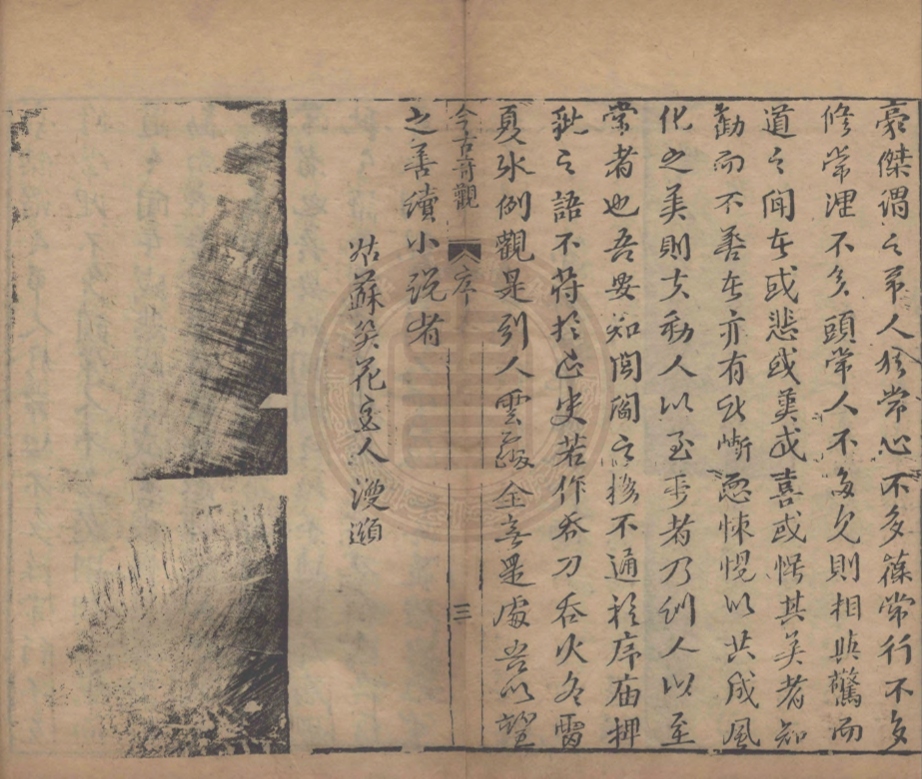 豪傑謂之第人於常心不多葆常行不多
修常理不多顧常人不多見則相與驚而
道之聞者或悲或嘆或喜或愕其善者知
勸而不善者亦有所慚恧悚惕以共成風
化之美則夫動人以至奇者乃訓人以至
常者也吾安知閭閻之務不通於廊廟稗
秕之語不符於正史若作吞刀吞火冬雷
夏冰例觀是引人雲霧全無是處吾以望
今古奇觀 序 三
之善讀小說者
姑蘇笑花主人漫題